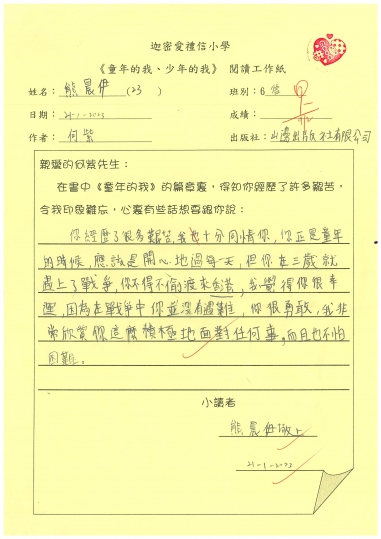 迦密愛禮信小學
《童年的我、少年的我》 閱讀工作紙
姓名：熊晨伊 (23) 班別：6信
日期：21-1-2023 成績：
作者：何紫 出版社：山邊出版社有限公司
親愛的何紫先生：
在書中《童年的我》的篇章裏，得知你經歷了許多艱苦，
令我印象難忘，心裏有些話想要跟你說：
你經歷了很多艱苦，我也十分同情你，你正是童年
的時候，應該是開心地過每一天，但你在三歲就
遇上了戰爭，你不得不偷渡來香港，我覺得你很幸
運，因為在戰爭中你並沒有遇難，你很勇敢，我非
常欣賞你這麼積極地面對任何事，而且也不怕
困難。
小讀者
熊晨伊敬上
21-1-2023